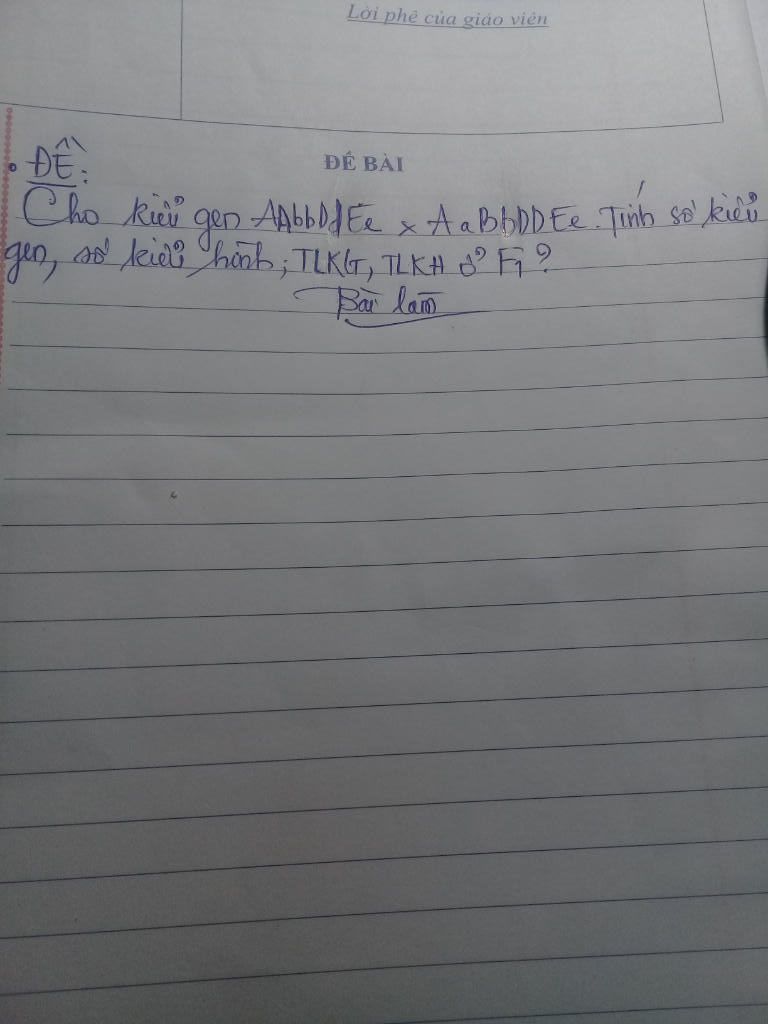 Lời phê của giáo viên
ĐỀ BÀI
• ĐỀ:
Cho kiểu gen AAbbDdEe x AaBbDDEe. Tính số kiểu
gen, số kiểu hình; TLKG, TLKH ở F1?
Bài làm